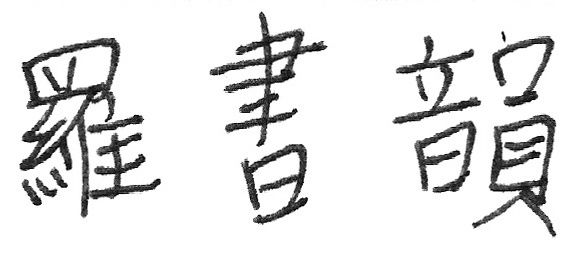 羅書韻